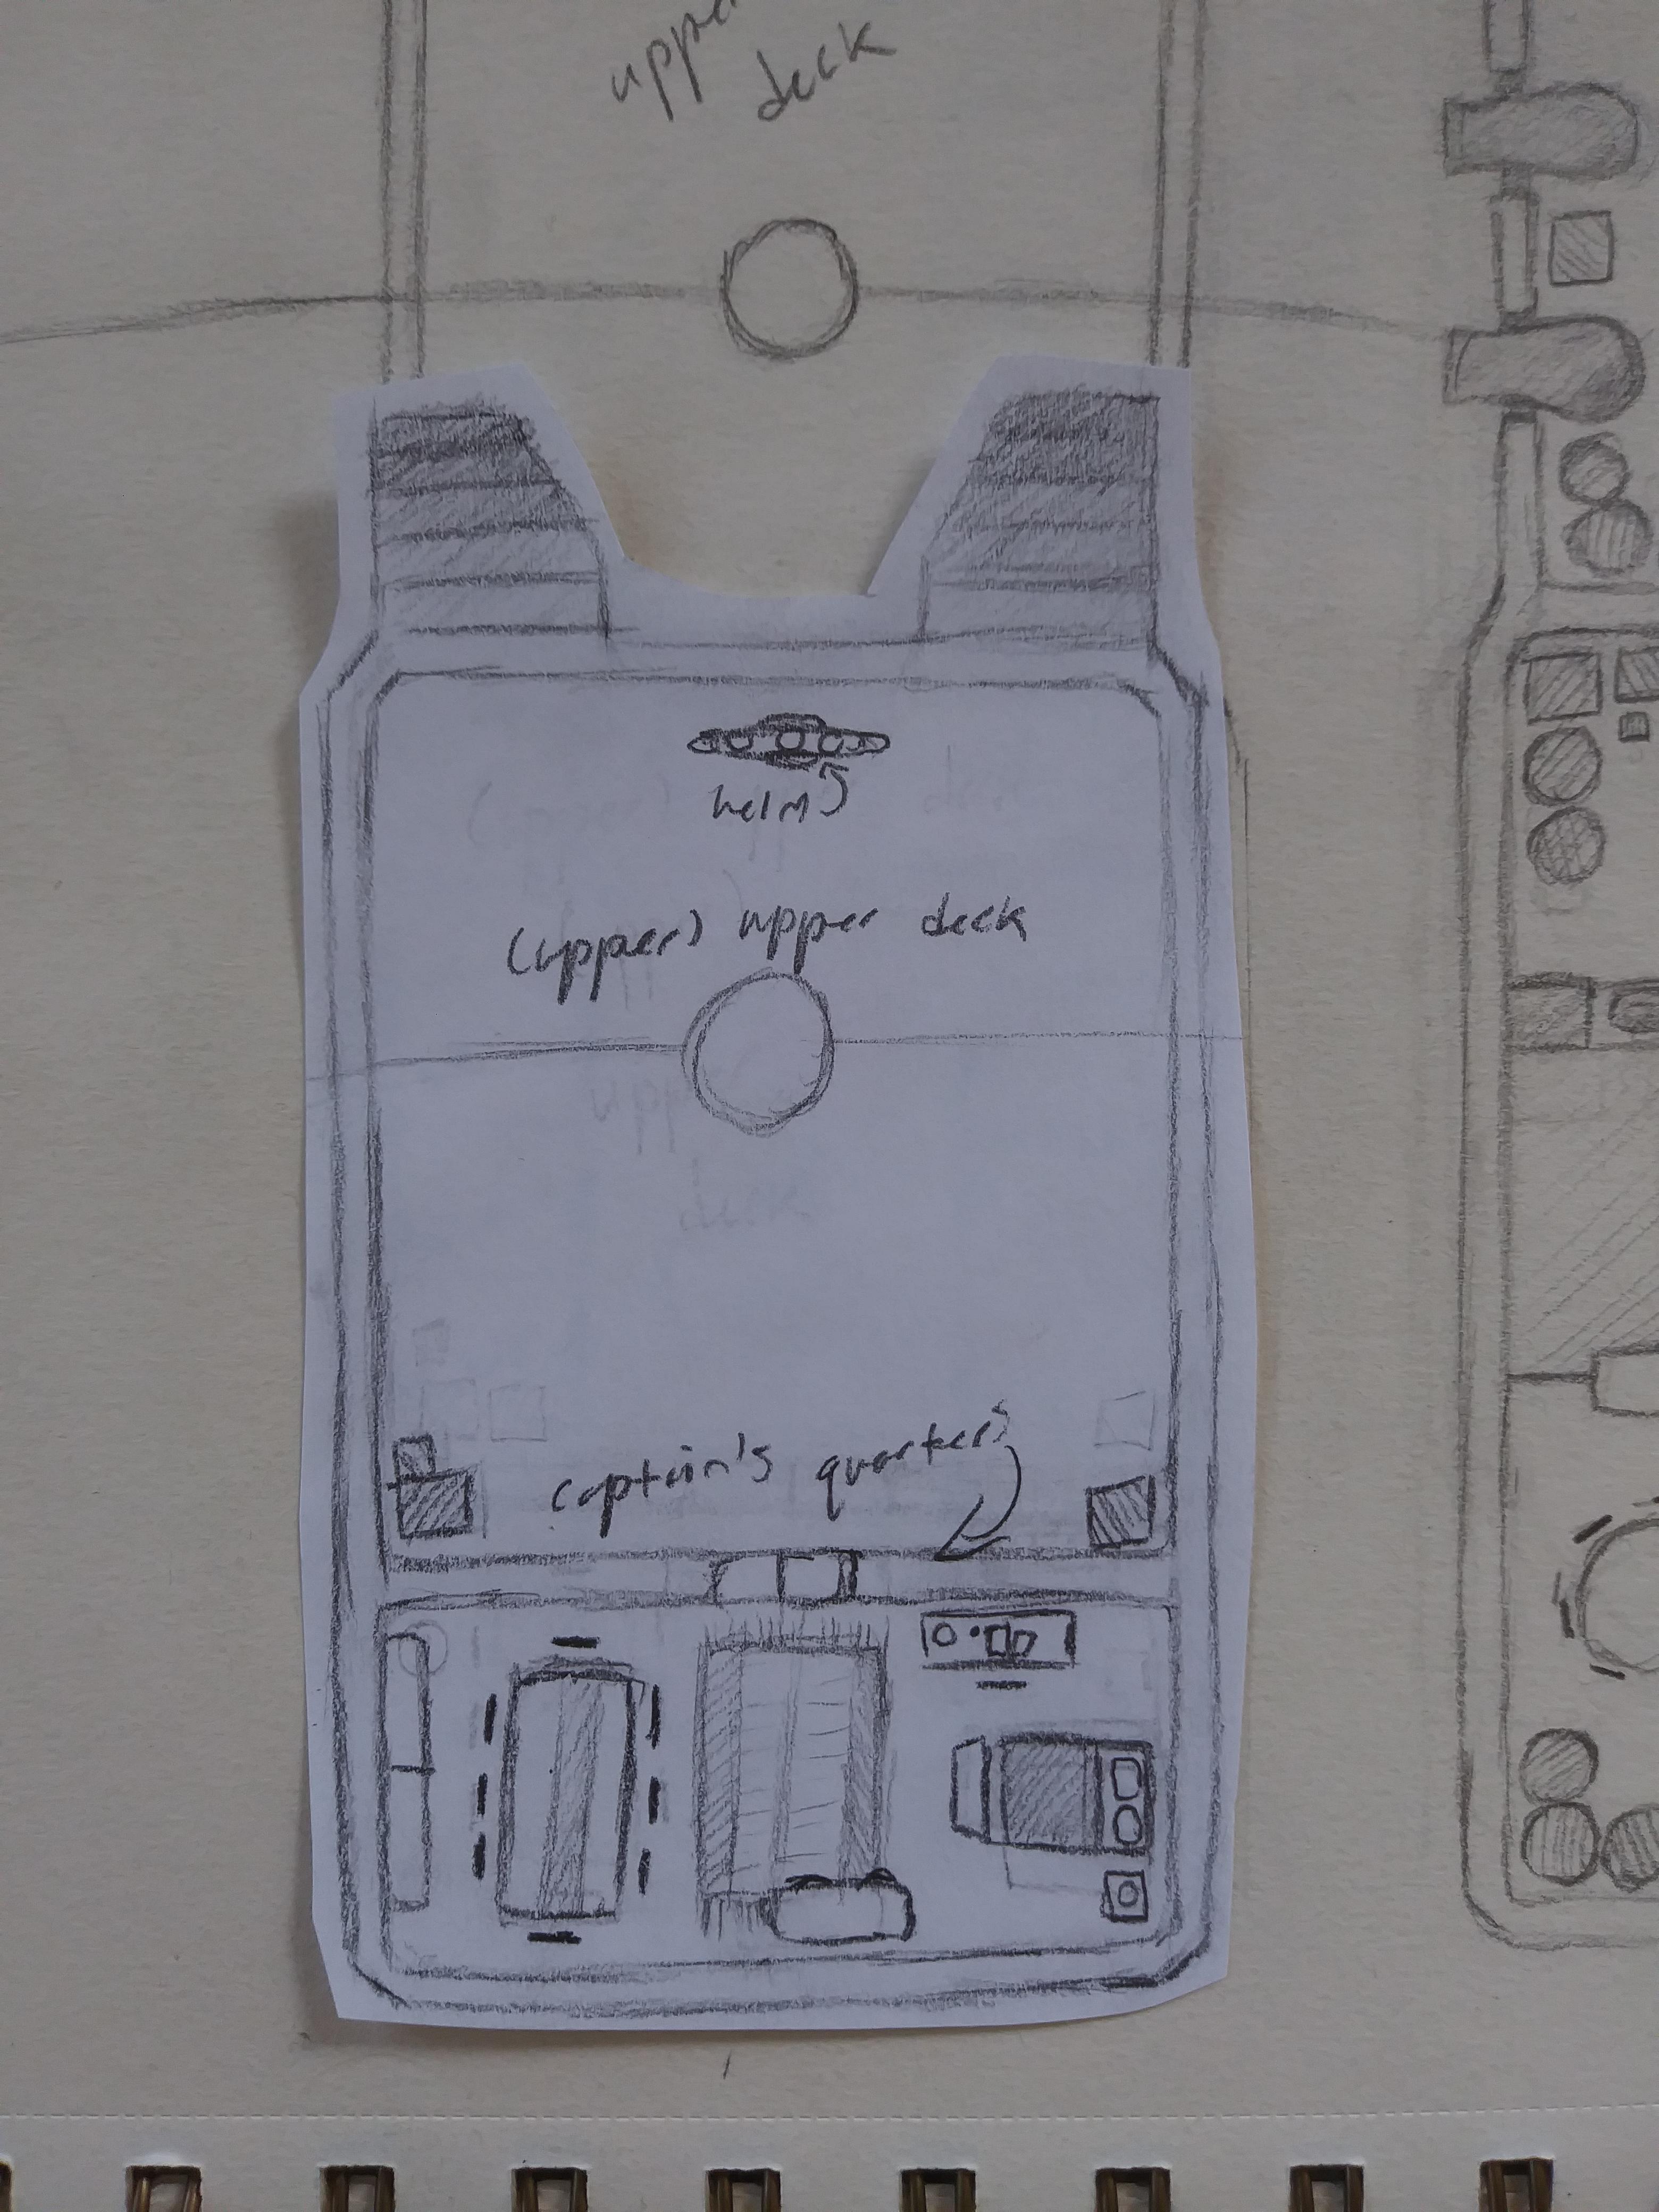 upper
deck
helm
(upper) upper deck
captain's quarters